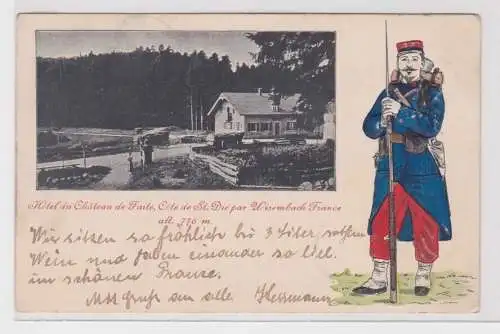 Hôtel du Château de Faite, Côte de St. Dié par Wisembach France
alt. 776 m
Wir sitzen so fröhlich bei 3 Liter rothen
Wein und haben einander so lieb
im schönen France.
Gruß an alle Herrmann